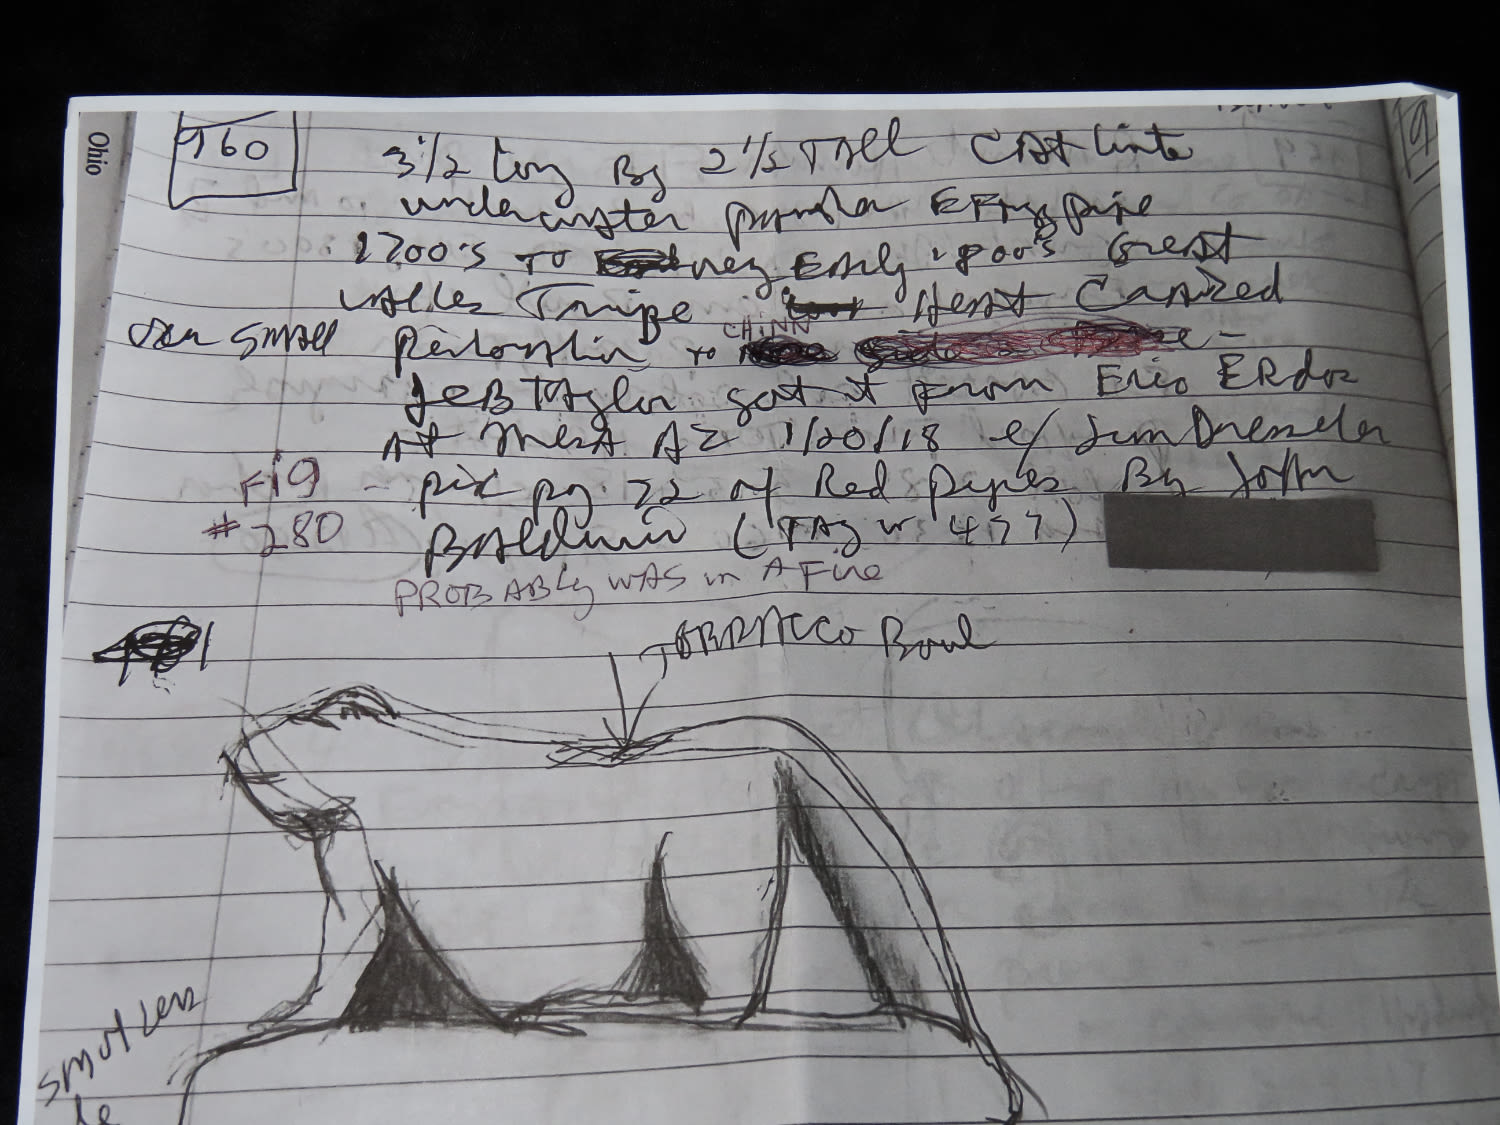 Ohio
960
3 1/2 long By 2 1/2 TALL CAtlinite
underwater panther EFFigy pipe
1700's TO very EARly 1800's Great
Lakes Tribe Heat Canted
Very SMAll Restoration to CHINN
JEB TAylor got it From Eric ERdos
At Mesa AZ 1/20/18 Jim Dressler
Fig - pix pg 72 of Red Pipes By John
#280 BAldwin (TAg # 477)
PROBABly WAS in A Fire
TOBBACCO Bowl